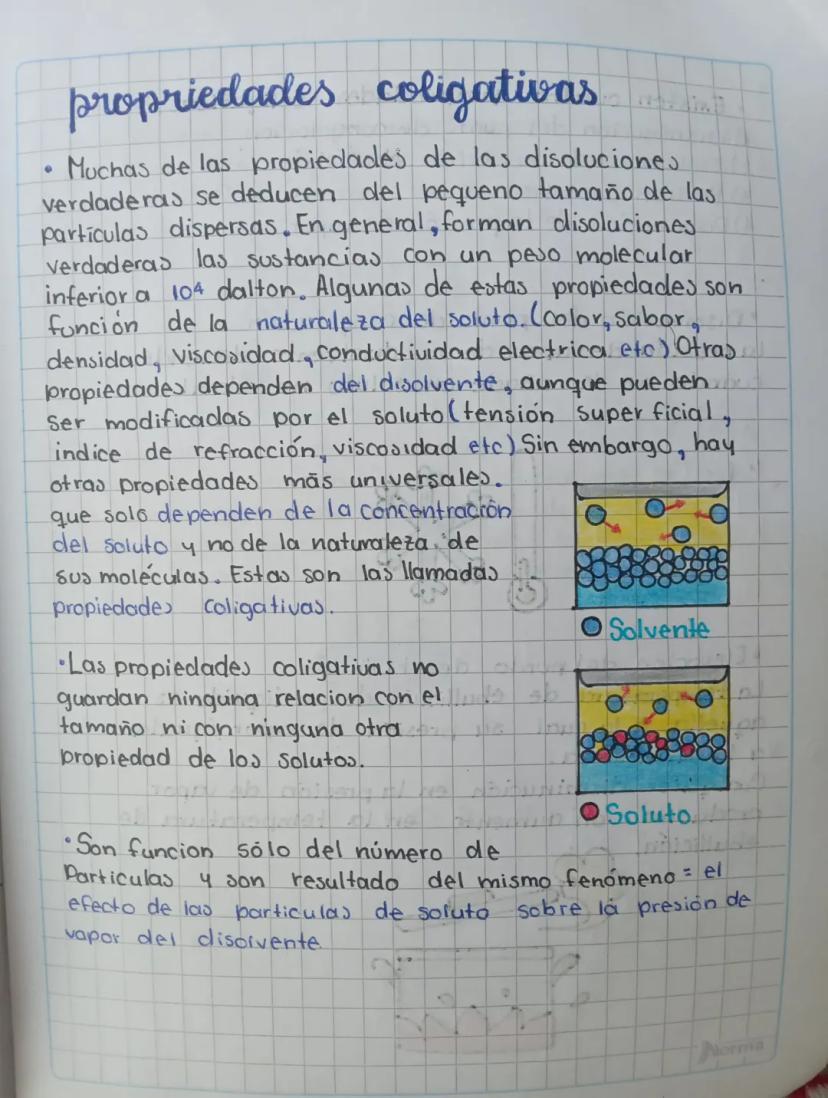 propriedades coligativas
• Muchas de las propiedades de las disoluciones
verdaderas se deducen del pequeno tamaño de las
partículas dispersas. En general, forman disoluciones
verdaderas las sustancias con un peso molecular
inferior a 10⁴ dalton. Algunas de estas propiedades son
función de la naturaleza del soluto. (color, sabor,
densidad, viscosidad, conductividad electrica etc) Otras
propiedades dependen del disolvente, aunque pueden
ser modificadas por el soluto (tensión superficial,
indice de refracción, viscosidad etc) Sin embargo, hay
otras propiedades más universales.
que solo dependen de la concentración
del soluto y no de la naturaleza de
sus moléculas. Estas son las llamadas
propiedades coligativas.
Solvente
• Las propiedades coligativas no
guardan ninguna relacion con el
tamaño ni con ninguna otra
propiedad de los solutos.
Soluto
• Son funcion sólo del número de
Particulas y son resultado del mismo fenómeno = el
efecto de las particulas de soluto sobre la presión de
vapor del disolvente
Norma